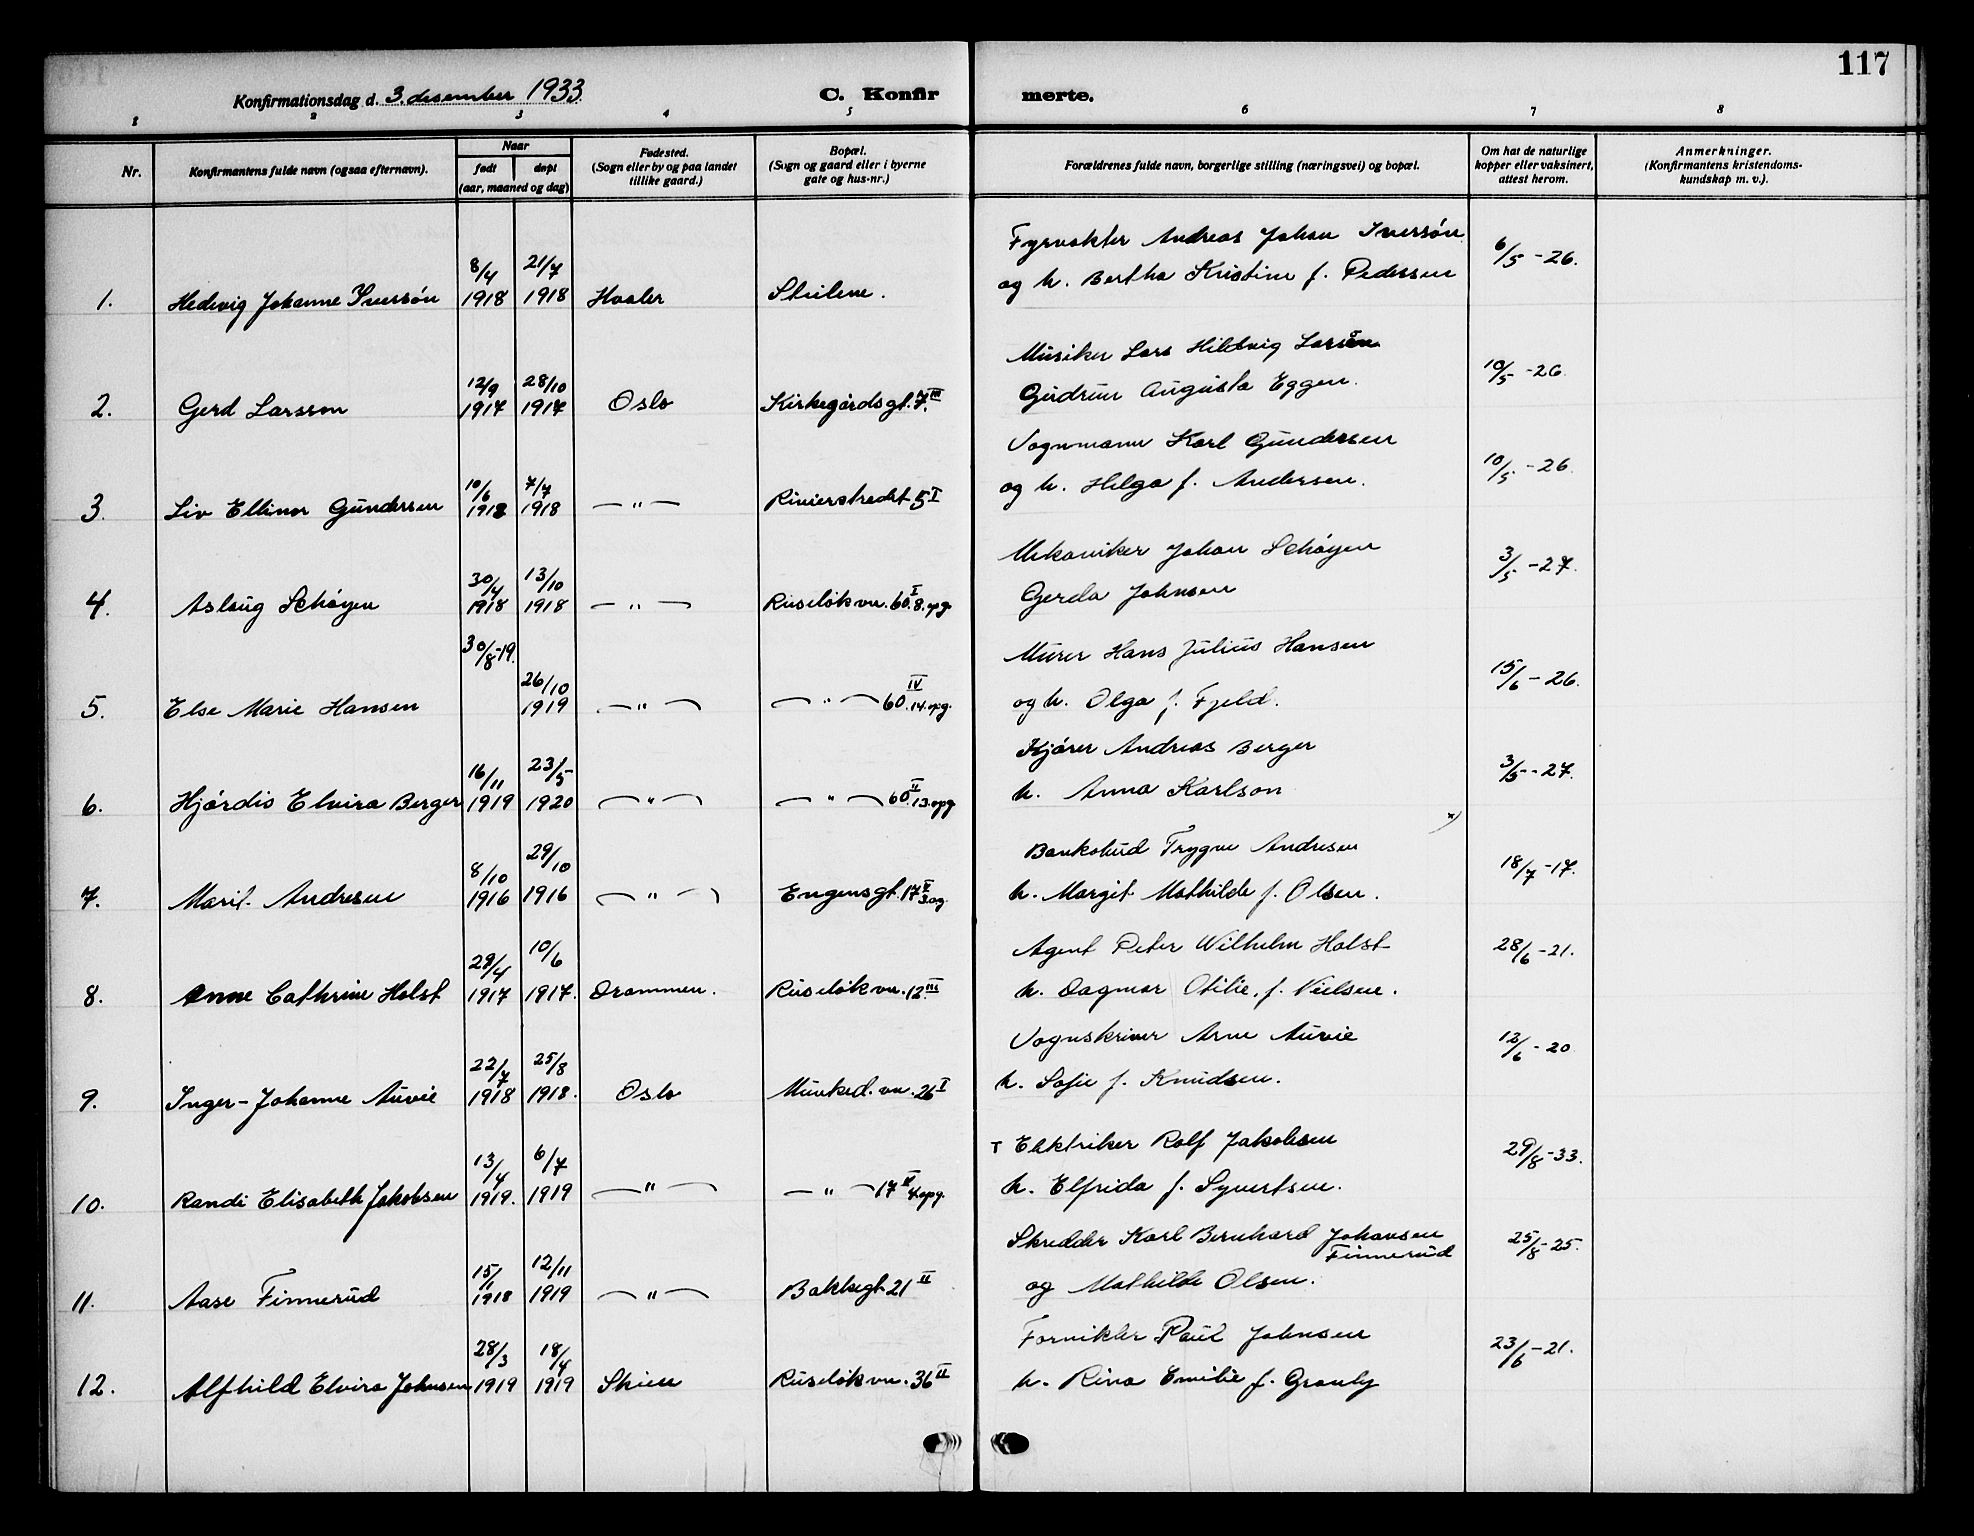 117
Konfirmationsdag d. 3. desember 1933. C. Konfirmerte.
1 2 3 4 5 6 7 8
Nr. Konfirmantens fulde navn (ogsaa efternavn). Naar født døpt (aar, maaned og dag) Fødested. (Sogn eller by og paa landet tillike gaard.) Bopæl. (Sogn og gaard eller i byerne gate og hus-nr.) Forældrenes fulde navn, borgerlige stilling (næringsvei) og bopæl. Om hat de naturlige kopper eller vaksinert, attest herom. Anmerkninger. (Konfirmantens kristendomskundskap m. v.).
Fyrvokter Andreas Johan Iversøn 6/5 -26.
8/4 21/7 og h. Bertha Kristine f. Pedersen
1. Hedevig Johanne Iversøn 1918 1918 Hvaler
Musiker Lars Hildvig Larsson
12/9 28/10 10/5 -26
2. Gerd Larsson 1917 1917 Oslo Kirkegårdsgt. 7 III Gudrun Augusta Eggen.
Vognmann Karl Gundersen
10/6 7/7 10/5 -26
3. Liv Ellinor Gundersen 1918 1918 — " — Rivierstredet 5 I og h. Helga f. Andersen.
Mekaniker Johan Schøyen
30/4 13/10 3/5 -27.
4. Aslaug Schøyen 1918 1918 — " — Ruseløkvn. 60 I 8. opg. Gerda Johnsen
30/8-19. Murer Hans Julius Hansen
26/10 15/6 -26.
5. Else Marie Hansen 1919 — " — — " — 60 IV 14. opg. og h. Olga f. Fjeld.
Kjører Andreas Berger
16/11 23/5 3/5 -27.
6. Hjørdis Elvira Berger 1919 1920 — " — — " — 60 II 13. opg h. Anna Karlson
x)
Trygve Andresen
8/10 29/10 18/7 -17.
7. Marit Andresen 1916 1916 — " — Engensgt. 17 V h. Margit Mathilde f. Olsen.
Agent Peter Wilhelm Holst
29/4 10/6 28/6 -21.
8. Anne Cathrine Holst 1917 1917. Drammen. Ruseløkvn. 12 III h. Dagmar Otilie, f. Nielsen.
Vognskriver Arne Auvie
22/7 25/8 12/6 -20
9. Inger-Johanne Auvie 1918 1918. Oslo Munked. vn. 26 I h. Sofie f. Knudsen.
T Elektriker Rolf Jakobsen
13/4 6/7 29/8 -33.
10. Randi Elisabeth Jakobsen 1919. 1919 — " — — " — 17 4. opg. h. Elfrida f. Syvertsen.
Skredder Karl Bernhard Johansen Finnerud
15/11 12/11 25/8 -25.
11. Aase Finnerud 1918 1919 — " — Bakkegt 21 II og Mathilde Olsen.
Paul Johnsen
28/3 18/4 23/6 -21.
12. Alfhild Elvira Johnsen 1919 1919 Skien Ruseløkvn. 36 II h. Rina Emilie f. Granly